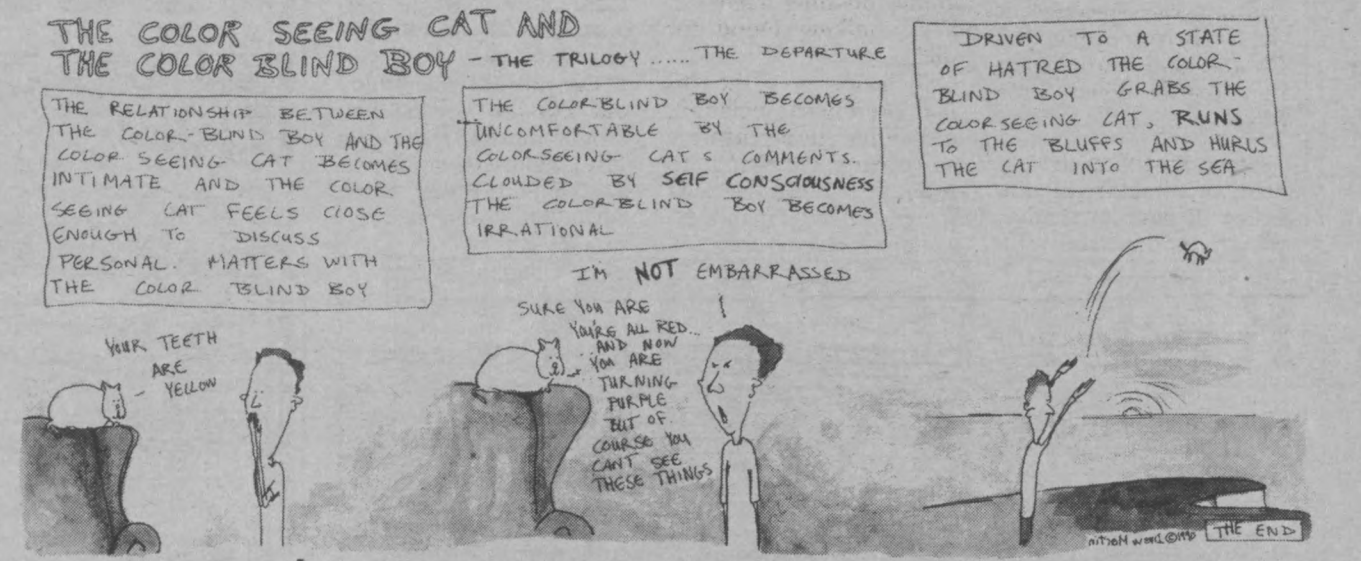 THE COLOR SEEING CAT AND
THE COLOR BLIND BOY - THE TRILOGY ...... THE DEPARTURE
THE RELATIONSHIP BETWEEN
THE COLOR-BLIND BOY AND THE
COLOR SEEING CAT BECOMES
INTIMATE AND THE COLOR
SEEING CAT FEELS CLOSE
ENOUGH TO DISCUSS
PERSONAL. MATTERS WITH
THE COLOR BLIND BOY
YOUR TEETH
ARE
YELLOW
THE COLORBLIND BOY BECOMES
UNCOMFORTABLE BY THE
COLORSEEING CAT S COMMENTS.
CLOUDED BY SELF CONSCIOUSNESS
THE COLORBLIND BOY BECOMES
IRRATIONAL
I'M NOT EMBARRASSED
SURE YOU ARE
YOU'RE ALL RED...
AND NOW
YOU ARE
TURNING
PURPLE
BUT OF
COURSE YOU
CANT SEE
THESE THINGS
DRIVEN TO A STATE
OF HATRED THE COLOR-
BLIND BOY GRABS THE
COLORSEEING CAT, RUNS
TO THE BLUFFS AND HURLS
THE CAT INTO THE SEA
©1990 Drew Martin
THE END